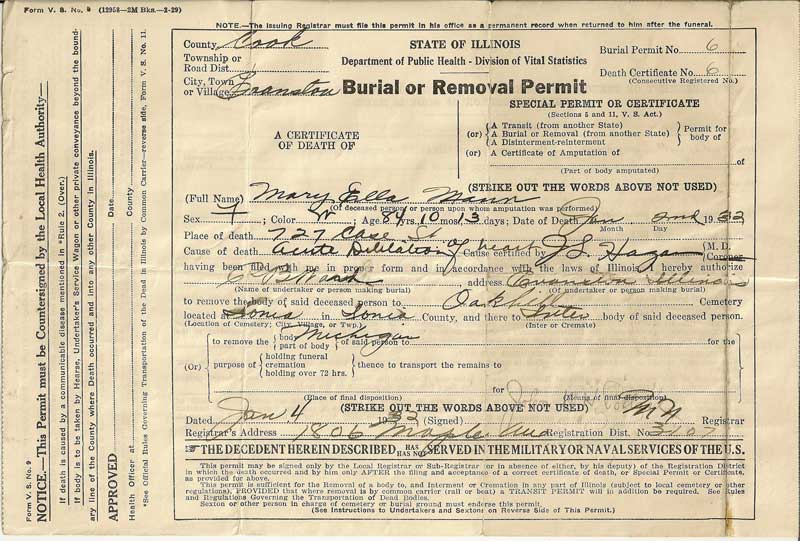 Form V. S. No. 9 (12958—2M Bks.—2-29)
NOTE.—The issuing Registrar must file this permit in his office as a permanent record when returned to him after the funeral.
County Cook
Township or
Road Dist.
City, Town
or Village Evanston
STATE OF ILLINOIS
Department of Public Health - Division of Vital Statistics
Burial or Removal Permit
Burial Permit No. 6
Death Certificate No. 6
(Consecutive Registered No.)
A CERTIFICATE
OF DEATH OF
SPECIAL PERMIT OR CERTIFICATE
(Sections 5 and 11, V. S. Act.)
(or) A Transit (from another State)
A Burial or Removal (from another State)
A Disinterment-reinterment
Permit for
body of
(or) A Certificate of Amputation of of
(Part of body amputated)
(STRIKE OUT THE WORDS ABOVE NOT USED)
(Full Name) Mary Ella Mann
(Of deceased person or person upon whom amputation was performed)
Sex F; Color W; Age 84 yrs. 10 mos. 13 days; Date of Death Jan 2nd 1933
Month Day
Place of death 727 Case St
Cause of death acute Dilatation of heart Cause certified by J S. Hagan M. D.
Coroner
having been filed with me in proper form and in accordance with the laws of Illinois, I hereby authorize
address Evanston Illinois
(Name of undertaker or person making burial) (Of undertaker or person making burial)
to remove the body of said deceased person to Oakhill Cemetery
located at Ionia in Ionia County, and there to Inter body of said deceased person.
(Location of Cemetery; City, Village, or Twp.) (Inter or Cremate)
Michigan
to remove the body
part of body of said person to for the
(Or) purpose of holding funeral
cremation
holding over 72 hrs. thence to transport the remains to
for
(Place of final disposition) (Means of final disposition)
(STRIKE OUT THE WORDS ABOVE NOT USED)
Dated Jan 4 1933 (Signed) Registrar
Registrar's Address 1806 Maple Ave Registration Dist. No. 3107
☞ THE DECEDENT HEREIN DESCRIBED HAS
HAS NOT SERVED IN THE MILITARY OR NAVAL SERVICES OF THE U.S.
This permit may be signed only by the Local Registrar or Sub-Registrar (or in absence of either, by his deputy) of the Registration District
in which the death occurred and by him only AFTER the filing and acceptance of a correct certificate of death, or Special Permit or Certificate,
as provided for above.
This permit is sufficient for the Removal of a body to, and Interment or Cremation in any part of Illinois (subject to local cemetery or other
regulations), PROVIDED that where removal is by common carrier (rail or boat) a TRANSIT PERMIT will in addition be required. See Rules
and Regulations Governing the Transportation of Dead Bodies.
Sexton or other person in charge of cemetery or burial ground must endorse this permit.
(See Instructions to Undertakers and Sextons on Reverse Side of This Permit.)
Form V. S. No. 9
NOTICE.—This Permit must be Countersigned by the Local Health Authority—
If death is caused by a communicable disease mentioned in *Rule 2. (Over.)
If body is to be taken by Hearse, Undertaker's Service Wagon or other private conveyance beyond the bound-
ary line of the County where Death occurred and into any other County in Illinois.
APPROVED Date
Health Officer at County
*See Official Rules Governing Transportation of the Dead in Illinois by Common Carrier—reverse side, Form V. S. No. 11.